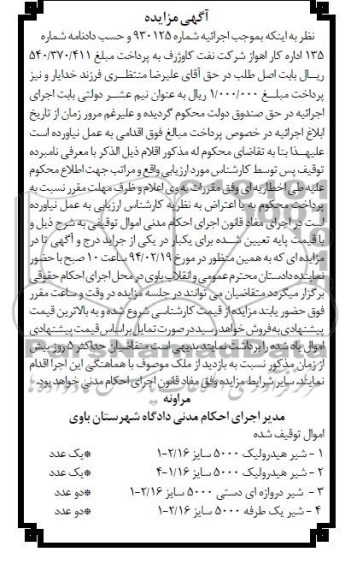 آگهی مزایده
نظر به اینکه بموجب اجرائیه شماره ۹۳۰۱۲۵ و حسب دادنامه شماره
۱۳۵ اداره کار اهواز شرکت نفت کاوژرف به پرداخت مبلغ ۵۴۰/۳۷۰/۴۱۱
ریال بابت اصل طلب در حق آقای علیرضا منتظری فرزند خدایار و نیز
پرداخت مبلغ ۱/۰۰۰/۰۰۰ ریال به عنوان نیم عشر دولتی بابت اجرای
اجرائیه در حق صندوق دولت محکوم گردیده و علیرغم مرور زمان از تاریخ
ابلاغ اجرائیه در خصوص پرداخت مبالغ فوق اقدامی به عمل نیاورده است
علیهذا بنا به تقاضای محکوم له مذکور اقلام ذیل الذکر با معرفی نامبرده
توقیف پس توسط کارشناس مورد ارزیابی واقع و مراتب جهت اطلاع محکوم
علیه طی اخطاریه ای وفق مقررات به وی اعلام و ظرف مهلت مقرر نسبت به
پرداخت محکوم به یا اعتراض به نظریه کارشناس ارزیابی به عمل نیاورده
است در اجرای مفاد قانون اجرای احکام مدنی اموال توقیفی به شرح ذیل و
با قیمت پایه تعیین شده برای یکبار در یکی از جراید درج و آگهی تا در
مزایده ای که به همین منظور در مورخ ۹۴/۰۲/۱۹ ساعت ۱۰ صبح با حضور
نماینده دادستان محترم عمومی و انقلاب باوی در محل اجرای احکام حقوقی
برگزار میگردد متقاضیان می توانند در جلسه مزایده در وقت و ساعت مقرر
فوق حضور یابند مزایده از قیمت کارشناسی شروع شده و به بالاترین قیمت
پیشنهادی به فروش خواهد رسید در صورت تمایل براساس قیمت پیشنهادی
اموال یاد شده را برداشت نمایند بدیهی است متقاضیان حداکثر ۵ روز پیش
از زمان مذکور نسبت به بازدید از ملک موصوف با هماهنگی این اجرا اقدام
نمایند. سایر شرایط مزایده وفق مفاد قانون اجرای احکام مدنی خواهد بود.
مراونه
مدیر اجرای احکام مدنی دادگاه شهرستان باوی
اموال توقیف شده
۱ - شیر هیدرولیک ۵۰۰۰ سایز ۲/۱۶-۱ *یک عدد
۲ - شیر هیدرولیک ۵۰۰۰ سایز ۱/۱۶-۴ *یک عدد
۳ - شیر دروازه ای دستی ۵۰۰۰ سایز ۲/۱۶-۱ *دو عدد
۴ - شیر یک طرفه ۵۰۰۰ سایز ۲/۱۶-۱ *دو عدد